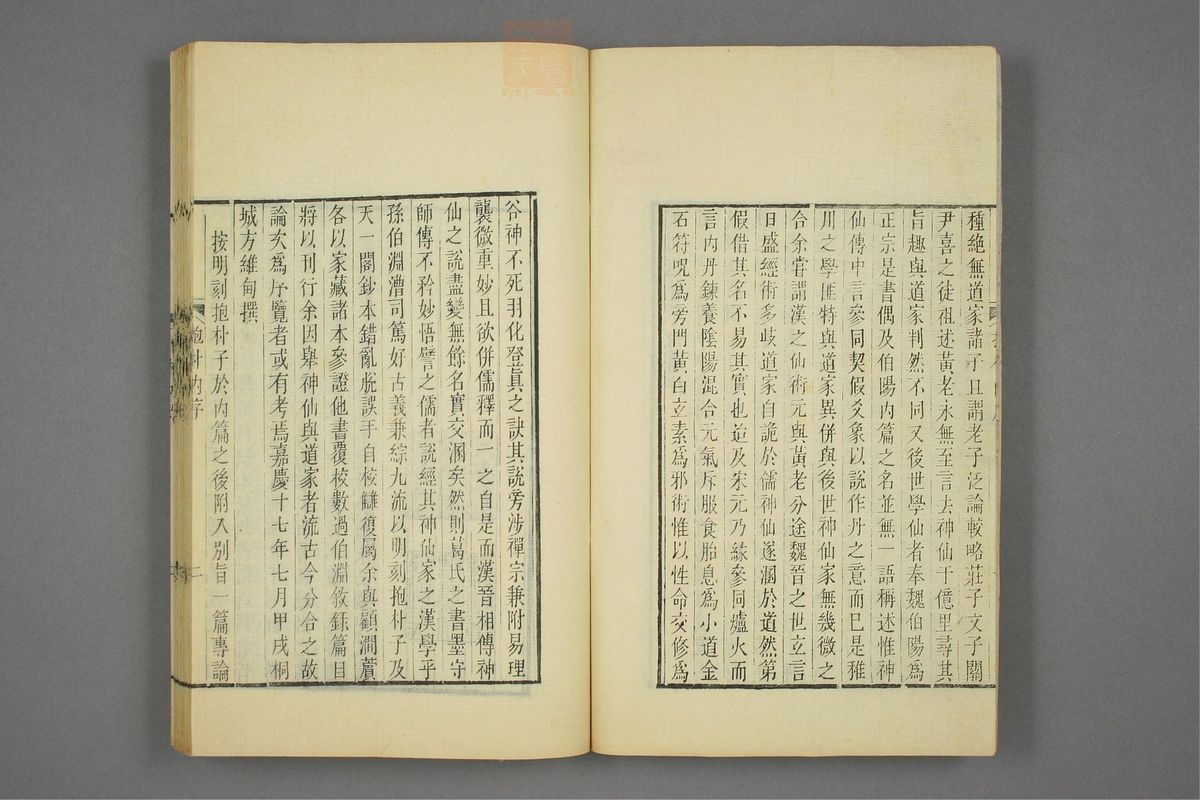 種絶無道家諸子且謂老子泛論較略莊子文子關
尹喜之徒祖述黃老永無至言去神仙千億里尋其
旨趣與道家判然不同又後世學仙者奉魏伯陽爲
正宗是書偶及伯陽內篇之名並無一語稱述惟神
仙傳中言參同契假爻象以說作丹之意而巳是稚
川之學匪特與道家異併與後世神仙家無幾微之
合余嘗謂漢之仙術元與黃老分途魏晉之世立言
日盛經術多歧道家自詭於儒神仙遂溷於道然第
假借其名不易其實也迨及宋元乃緣參同爐火而
言內丹鍊養陰陽混合元氣斥服食胎息爲小道金
石符咒爲旁門黃白立素爲邪術惟以性命交修爲
谷神不死羽化登眞之訣其說旁涉禪宗兼附易理
襲微重妙且欲併儒釋而一之自是而漢晉相傳神
仙之說盡變無餘名實交溷矣然則葛氏之書墨守
師傳不矜妙悟譬之儒者說經其神仙家之漢學乎
孫伯淵漕司篤好古義兼綜九流以明刻抱朴子及
天一閣鈔本錯亂脫誤手自校讎復屬余與顧澗薲
各以家藏諸本參證他書覆校數過伯淵敘錄篇目
將以刊行余因舉神仙與道家者流古今分合之故
論次爲序覽者或有考焉嘉慶十七年七月甲戌桐
城方維甸撰
按明刻抱朴子於內篇之後附入別旨一篇專論
抱朴內序
二
zysj.com.cn